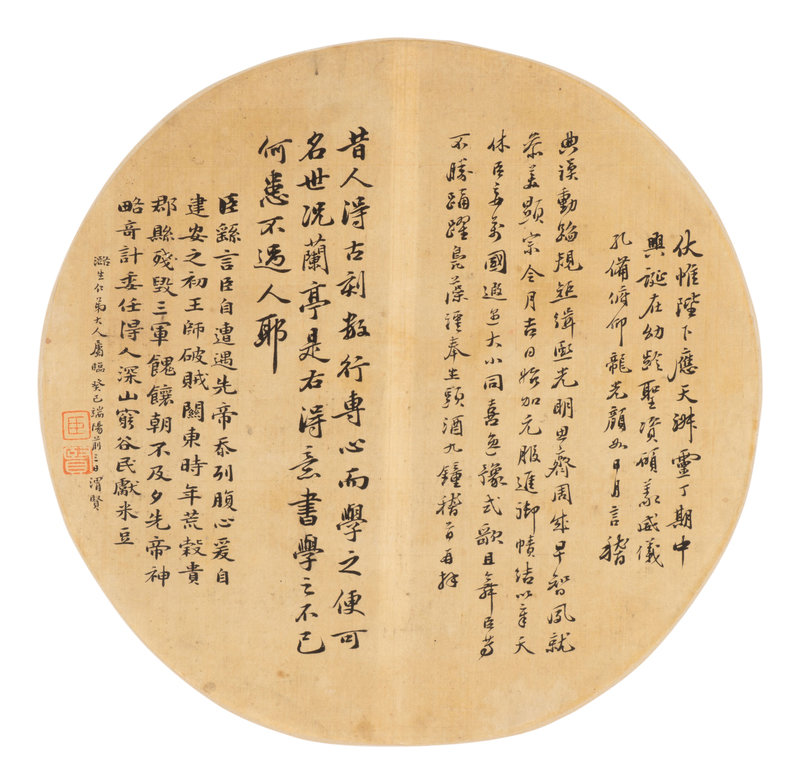 伏惟陛下應天淋靈丁期中
興誕在幼齡聖資碩義威儀
孔備俯仰龍光顏如日月言稽
典謨動蹈規矩緝熙光明思齊周成早智夙就
恭美顯宗令月吉日始加元服進御幘結以章天
休臣妾萬國遐邇大小同喜逸豫式歌且舞臣等
不勝踊躍鳧藻謹奉生頸酒九鐘稽首再拜
昔人得古刻數行專心而學之便可
名世況蘭亭是右得意書學之不已
何患不過人耶
臣繇言臣自遭遇先帝忝列腹心爰自
建安之初王師破賊關東時年荒穀貴
郡縣殘毀三軍餽饟朝不及夕先帝神
略奇計委任得人深山窮谷民獻米豆
生仁弟大人屬臨癸巳端陽前三日渭賢
臣賢